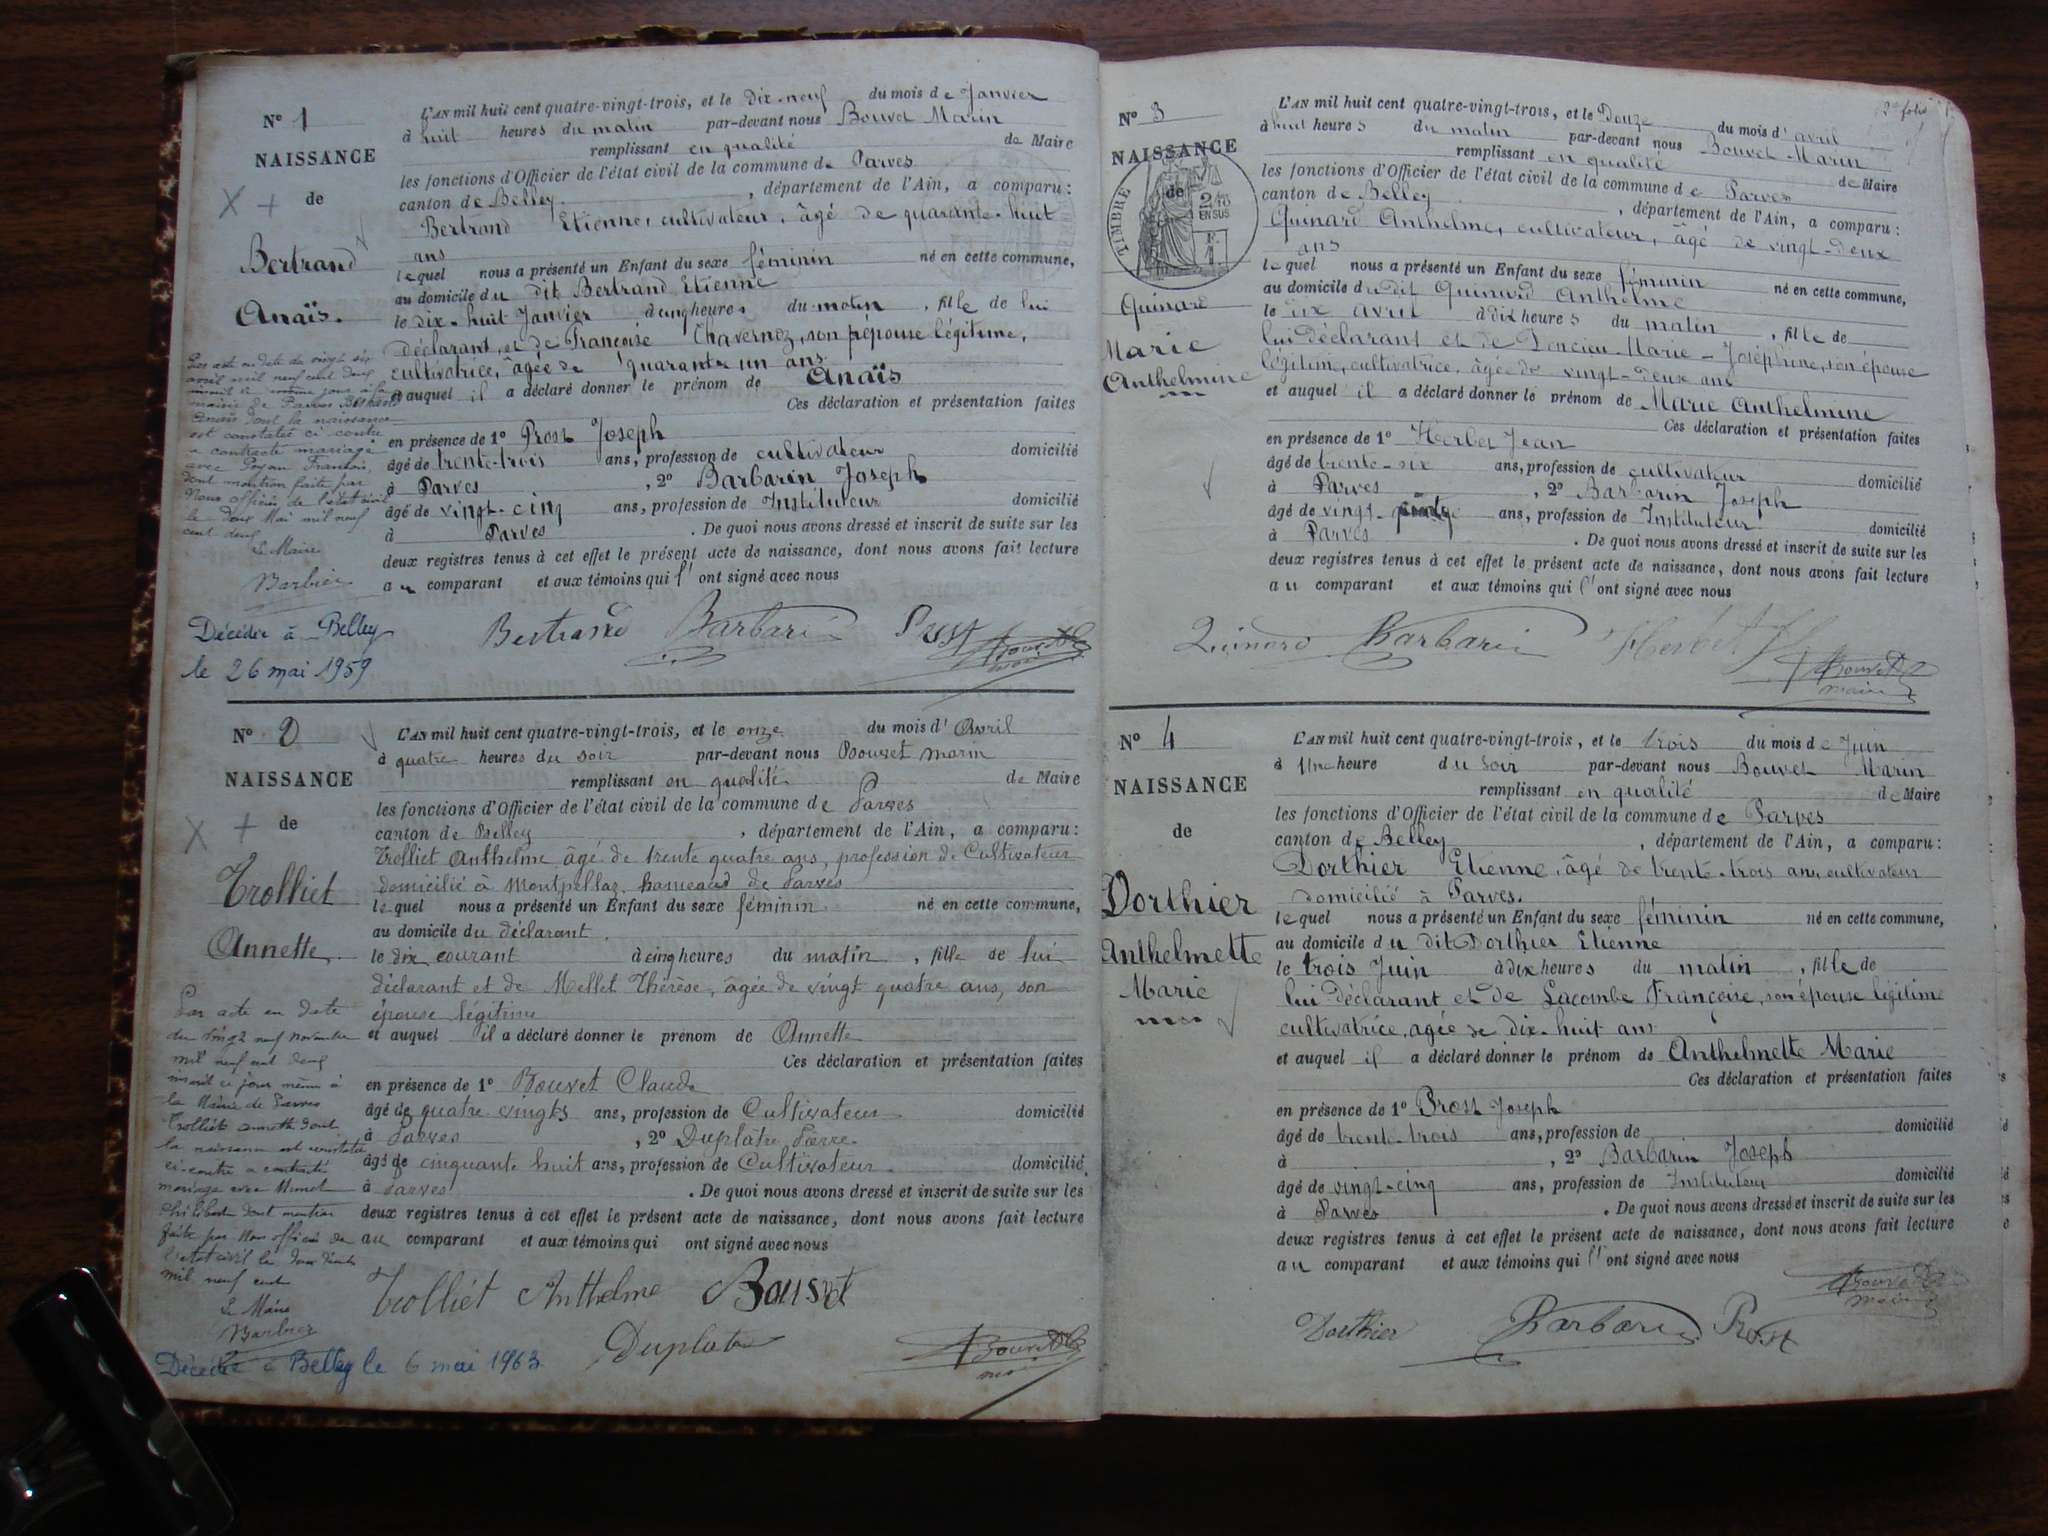 Nº 1
NAISSANCE
de
Bertrand
Anaïs.
L'AN mil huit cent quatre-vingt-trois, et le dix-neuf du mois de Janvier
à huit heures du matin par-devant nous Bouvet Marin
remplissant en qualité de Maire
les fonctions d'Officier de l'état civil de la commune de Parves
canton de Belley, département de l'Ain, a comparu:
Bertrand Etienne, cultivateur, âgé de quarante-huit
ans
lequel nous a présenté un Enfant du sexe féminin né en cette commune,
au domicile du dit Bertrand Etienne
le dix-huit Janvier à cinq heures du matin, fille de lui
déclarant, et de Françoise Chavernoz, son épouse légitime,
cultivatrice, âgée de quarante un ans
et auquel il a déclaré donner le prénom de Anaïs
Ces déclaration et présentation faites
en présence de 1º Prost Joseph
âgé de trente-trois ans, profession de cultivateur domicilié
à Parves, 2º Barbarin Joseph
âgé de vingt-cinq ans, profession de Instituteur domicilié
à Parves. De quoi nous avons dressé et inscrit de suite sur les
deux registres tenus à cet effet le présent acte de naissance, dont nous avons fait lecture
au comparant et aux témoins qui l'ont signé avec nous
Par acte en date du vingt six
avril mil neuf cent deux
inscrit le même jour à la
mairie de Parves Bertrand
Anaïs dont la naissance
est constatée ci contre
a contracté mariage
avec François,
dont mention faite par
Nous officier de l'état civil
le deux Mai mil neuf
cent deux
Le Maire
Barbier
Décédée à Belley
le 26 mai 1959
Bertrand Barbarin Prost Bouvet
maire
Nº 2
NAISSANCE
de
Trolliet
Annette.
L'AN mil huit cent quatre-vingt-trois, et le onze du mois d'Avril
à quatre heures du soir par-devant nous Bouvet marin
remplissant en qualité de Maire
les fonctions d'Officier de l'état civil de la commune de Parves
canton de Belley, département de l'Ain, a comparu:
Trolliet Anthelme âgé de trente quatre ans, profession de Cultivateur
domicilié à Montpellaz hameau de Parves
lequel nous a présenté un Enfant du sexe féminin né en cette commune,
au domicile du déclarant.
le dix courant à cinq heures du matin, fille de lui
déclarant et de Mellet Thérèse, âgée de vingt quatre ans, son
épouse légitime
et auquel il a déclaré donner le prénom de Annette
Ces déclaration et présentation faites
en présence de 1º Bouvet Claude
âgé de quatre vingts ans, profession de Cultivateur domicilié
à Parves, 2º Duplâtre Pierre
âgé de cinquante huit ans, profession de Cultivateur domicilié
à Parves. De quoi nous avons dressé et inscrit de suite sur les
deux registres tenus à cet effet le présent acte de naissance, dont nous avons fait lecture
au comparant et aux témoins qui ont signé avec nous
Par acte en date
du vingt neuf novembre
mil neuf cent deux
inscrit ce jour même à
la Mairie de Parves
Trolliet annette dont
la naissance est constatée
ci-contre a contracté
mariage avec
Philibert dont mention
faite par Nous officier de
l'état civil le
mil neuf cent
Le Maire
Barbier
Décédée à Belley le 6 mai 1963
Trolliet Anthelme Bouvet
Duplatre Bouvet
2e folio
Nº 3
NAISSANCE
de
TIMBRE
2/10 EN SUS
Quinard
Marie
Anthelmine
L'AN mil huit cent quatre-vingt-trois, et le Douze du mois d'avril
à huit heures du matin par-devant nous Bouvet Marin
remplissant en qualité de Maire
les fonctions d'Officier de l'état civil de la commune de Parves
canton de Belley, département de l'Ain, a comparu:
Quinard Anthelme, cultivateur, âgé de vingt-deux
ans
lequel nous a présenté un Enfant du sexe féminin né en cette commune,
au domicile du dit Quinard Anthelme
le dix avril à dix heures du matin, fille de
lui déclarant et de Poncieu Marie-Joséphine, son épouse
légitime, cultivatrice, âgée de vingt-deux ans
et auquel il a déclaré donner le prénom de Marie Anthelmine
Ces déclaration et présentation faites
en présence de 1º Herbet Jean
âgé de trente-six ans, profession de cultivateur domicilié
à Parves, 2º Barbarin Joseph
âgé de vingt- ans, profession de Instituteur domicilié
à Parves. De quoi nous avons dressé et inscrit de suite sur les
deux registres tenus à cet effet le présent acte de naissance, dont nous avons fait lecture
au comparant et aux témoins qui l'ont signé avec nous
Quinard Barbarin Herbet Bouvet
maire
Nº 4
NAISSANCE
de
Dorthier
Anthelmette
Marie
L'AN mil huit cent quatre-vingt-trois, et le trois du mois de Juin
à Une heure du soir par-devant nous Bouvet Marin
remplissant en qualité de Maire
les fonctions d'Officier de l'état civil de la commune de Parves
canton de Belley, département de l'Ain, a comparu:
Dorthier Etienne, âgé de trente-trois ans, cultivateur
domicilié à Parves.
lequel nous a présenté un Enfant du sexe féminin né en cette commune,
au domicile du dit Dorthier Etienne
le trois Juin à dix heures du matin, fille de
lui déclarant et de Lacombe Françoise, son épouse légitime
cultivatrice, agée de dix-huit ans
et auquel il a déclaré donner le prénom de Anthelmette Marie
Ces déclaration et présentation faites
en présence de 1º Prost Joseph
âgé de trente-trois ans, profession de domicilié
à , 2º Barbarin Joseph
âgé de vingt-cinq ans, profession de Instituteur domicilié
à Parves. De quoi nous avons dressé et inscrit de suite sur les
deux registres tenus à cet effet le présent acte de naissance, dont nous avons fait lecture
au comparant et aux témoins qui l'ont signé avec nous
Bouvet
maire
Dorthier Barbarin Prost